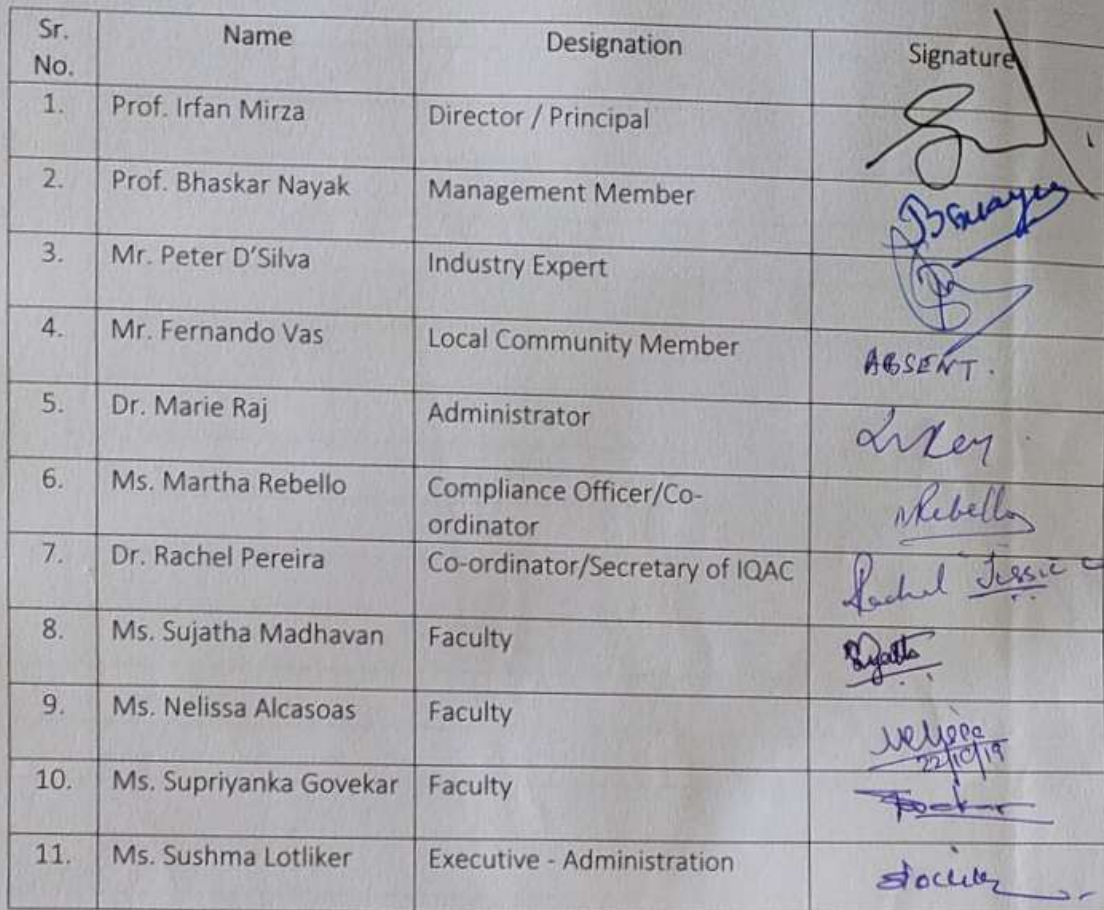 Sr. No. Name Designation Signature
1. Prof. Irfan Mirza Director / Principal
2. Prof. Bhaskar Nayak Management Member
3. Mr. Peter D'Silva Industry Expert
4. Mr. Fernando Vas Local Community Member ABSENT.
5. Dr. Marie Raj Administrator
6. Ms. Martha Rebello Compliance Officer/Co-
ordinator MRebello
7. Dr. Rachel Pereira Co-ordinator/Secretary of IQAC Rachel Jessica
8. Ms. Sujatha Madhavan Faculty
9. Ms. Nelissa Alcasoas Faculty 22/10/19
10. Ms. Supriyanka Govekar Faculty
11. Ms. Sushma Lotliker Executive - Administration